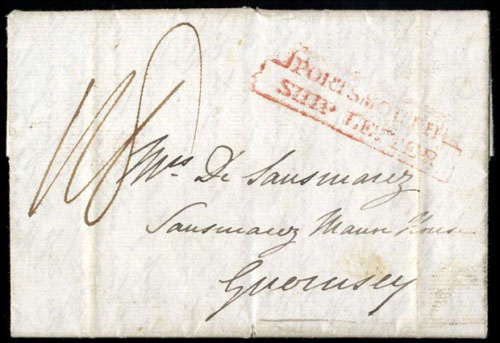 PORTSMOUTH
SHIP LETTER
Mrs De Sausmarez
Sausmarez Manor House
Guernsey